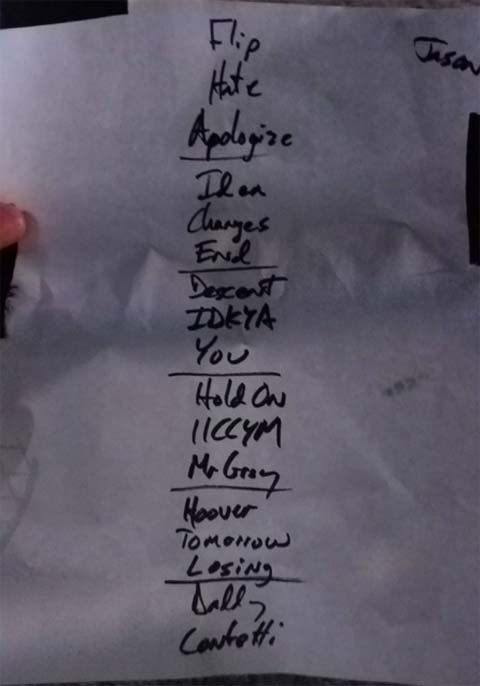 Flip
Jason
Hate
Apologize
Changes
End
Descent
IDKYA
You
Hold On
IICCYM
Mr Gray
Hoover
Tomorrow
Losing
Confetti